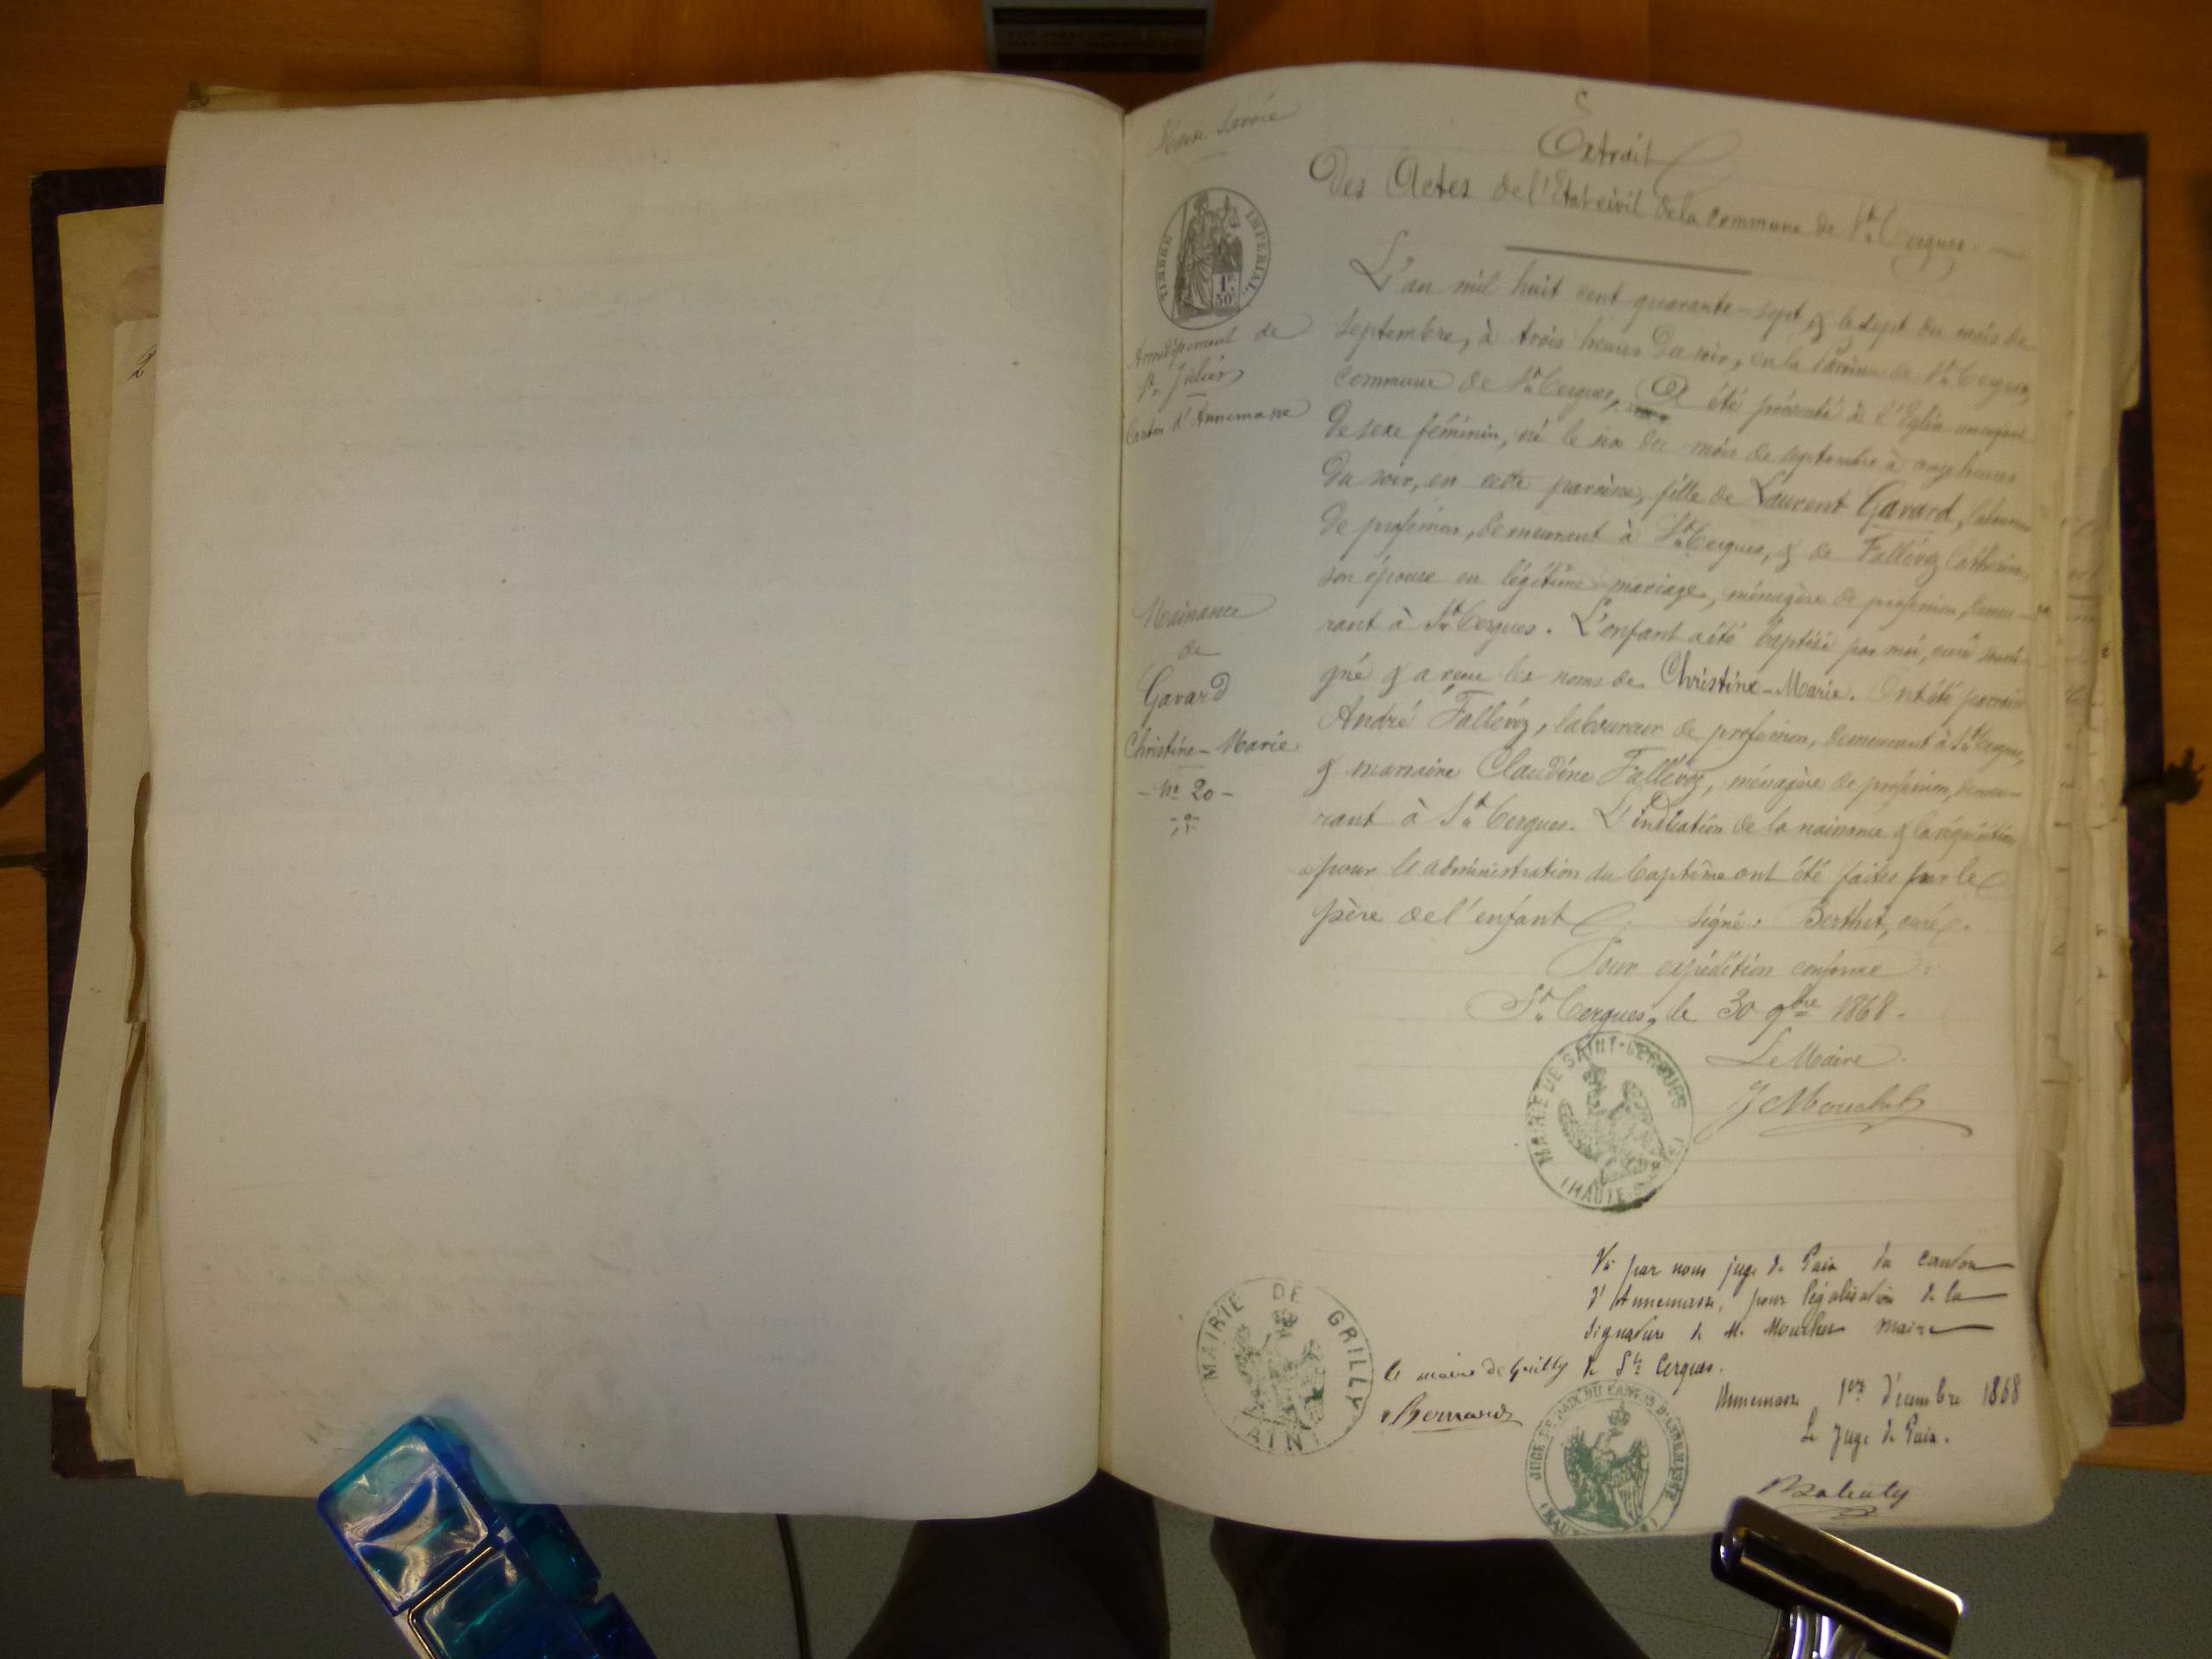 2
Haute Savoie
TIMBRE IMPERIAL
1F 50
Arrondissement de
St Julien
Canton d'Annemasse
Naissance
de
Gavard
Christine-Marie
- No 20 -
Extrait
Des Actes de l'Etat civil de la commune de St Cergues.
L'an mil huit cent quarante-sept, & le sept du mois de
septembre, à trois heures du soir, en la Paroisse de St Cergues,
commune de St Cergues, A été présenté à l'Eglise un enfant
de sexe féminin, né le six du mois de septembre à onze heures
du soir, en cette paroisse, fille de Laurent Gavard, laboureur
de profession, demeurant à St Cergues, & de Fallévoz Catherine,
son épouse en légitime mariage, ménagère de profession, demeu-
rant à St Cergues. L'enfant a été baptisé par moi, curé soussi-
gné & a reçu les noms de Christine-Marie. Ont été parrain
André Fallévoz, laboureur de profession, demeurant à St Cergues,
& marraine Claudine Fallévoz, ménagère de profession, demeu-
rant à St Cergues. L'indication de la naissance & la réquisition
pour le administration du baptême ont été faites par le
père de l'enfant. signé: Berthet, curé.
Pour expédition conforme:
St Cergues, le 30 9bre 1868.
Le Maire
J Mouchet
MAIRIE DE SAINT-CERGUES
(HAUTE-S
Vu par nous juge de Paix du canton
d'Annemasse, pour légalisation de la
signature de M. Mouchet maire
de St Cergues.
Annemasse 1er décembre 1868
Le Juge de Paix.
MAIRIE DE GRILLY
AIN
le maire de Grilly
Bernard
JUGE DE PAIX DU CANTON D'ANNEMASSE
(HAU